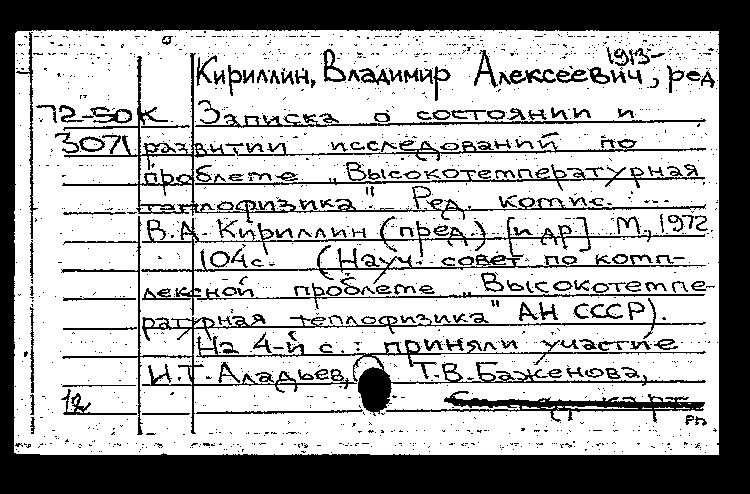 1913-
Кириллин, Владимир Алексеевич, ред
72-50К Записка о состоянии и
3071 развитии исследований по
проблеме „Высокотемпературная
теплофизика". Ред. комис. ...
В.А. Кириллин (пред.) [и др] М, 1972
104с. (Науч. совет по комп-
лексной проблеме „Высокотемпе-
ратурная теплофизика" АН СССР).
На 4-й с.: приняли участие
И.Т. Аладьев, Т.В. Баженова,
12